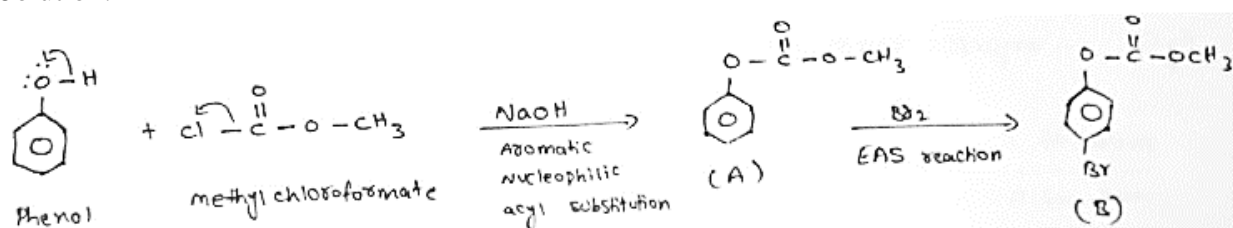 :Ö – H
Phenol
+
O
Cl – C – O – CH3
methyl chloroformate
NaOH
Aromatic
Nucleophilic
acyl substitution
O
O – C – O – CH3
(A)
Br2
EAS reaction
O
O – C – OCH3
Br
(B)